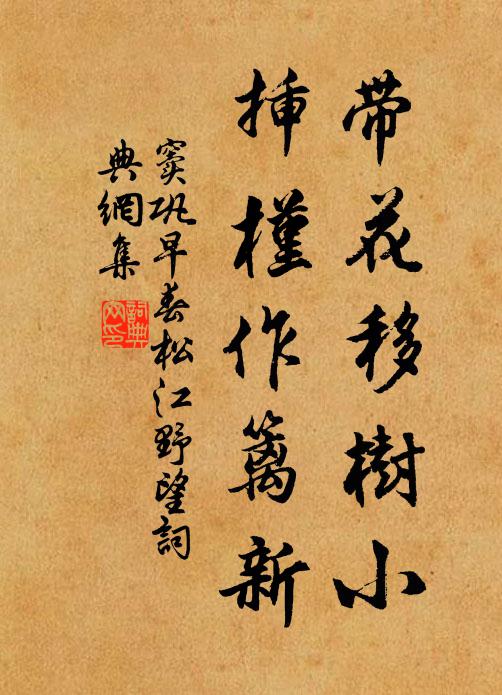 带花移樹小
插槿作篱新
窦巩早春松江野望詞
典網集
詞典
网印